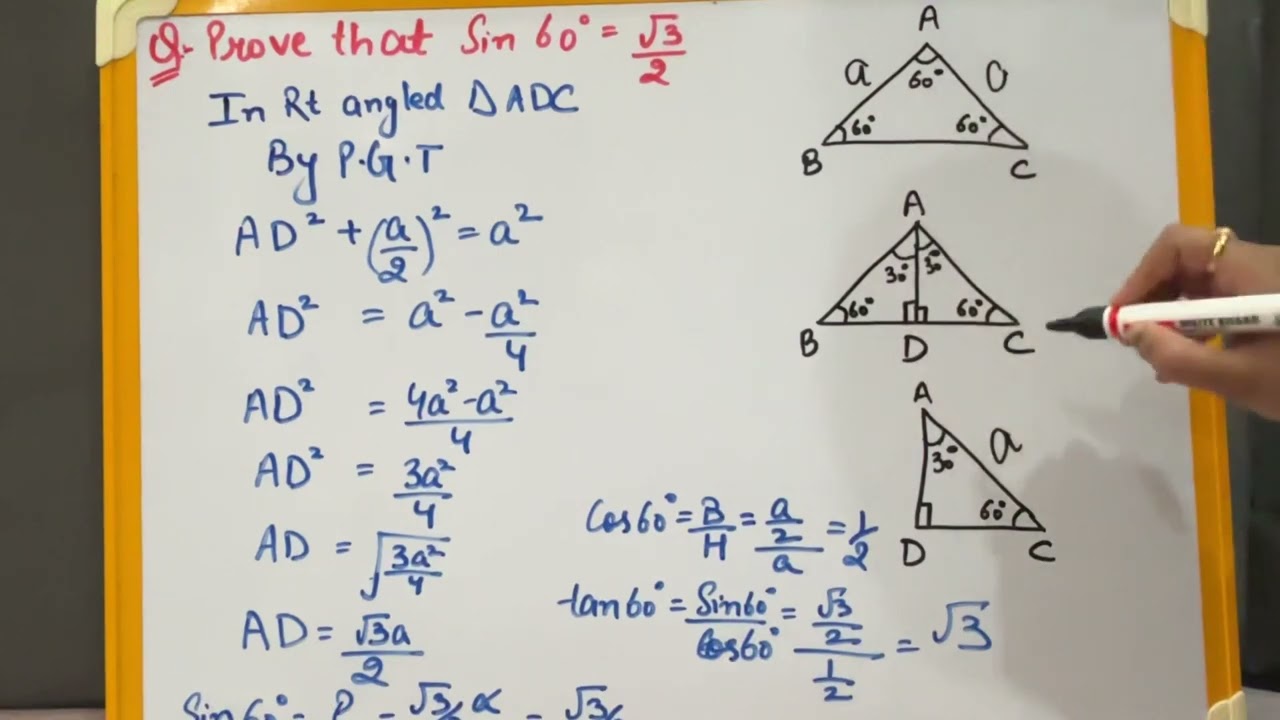 Q. Prove that Sin 60° = √3/2
In Rt angled ΔADC
By P.G.T
AD² + (a/2)² = a²
AD² = a² - a²/4
AD² = 4a² - a²/4
AD² = 3a²/4
AD = √3a²/4
AD = √3a/2
Sin 60° = P = √3/2 a = √3/
Cos 60° = B/H = a/2/a = 1/2
tan 60° = Sin 60°/Cos 60° = √3/2/1/2 = √3
A
a 60° a
60° 60°
B C
A
30° 30°
60° 60°
B D C
WHITE BOARD
A
30° a
60°
D C